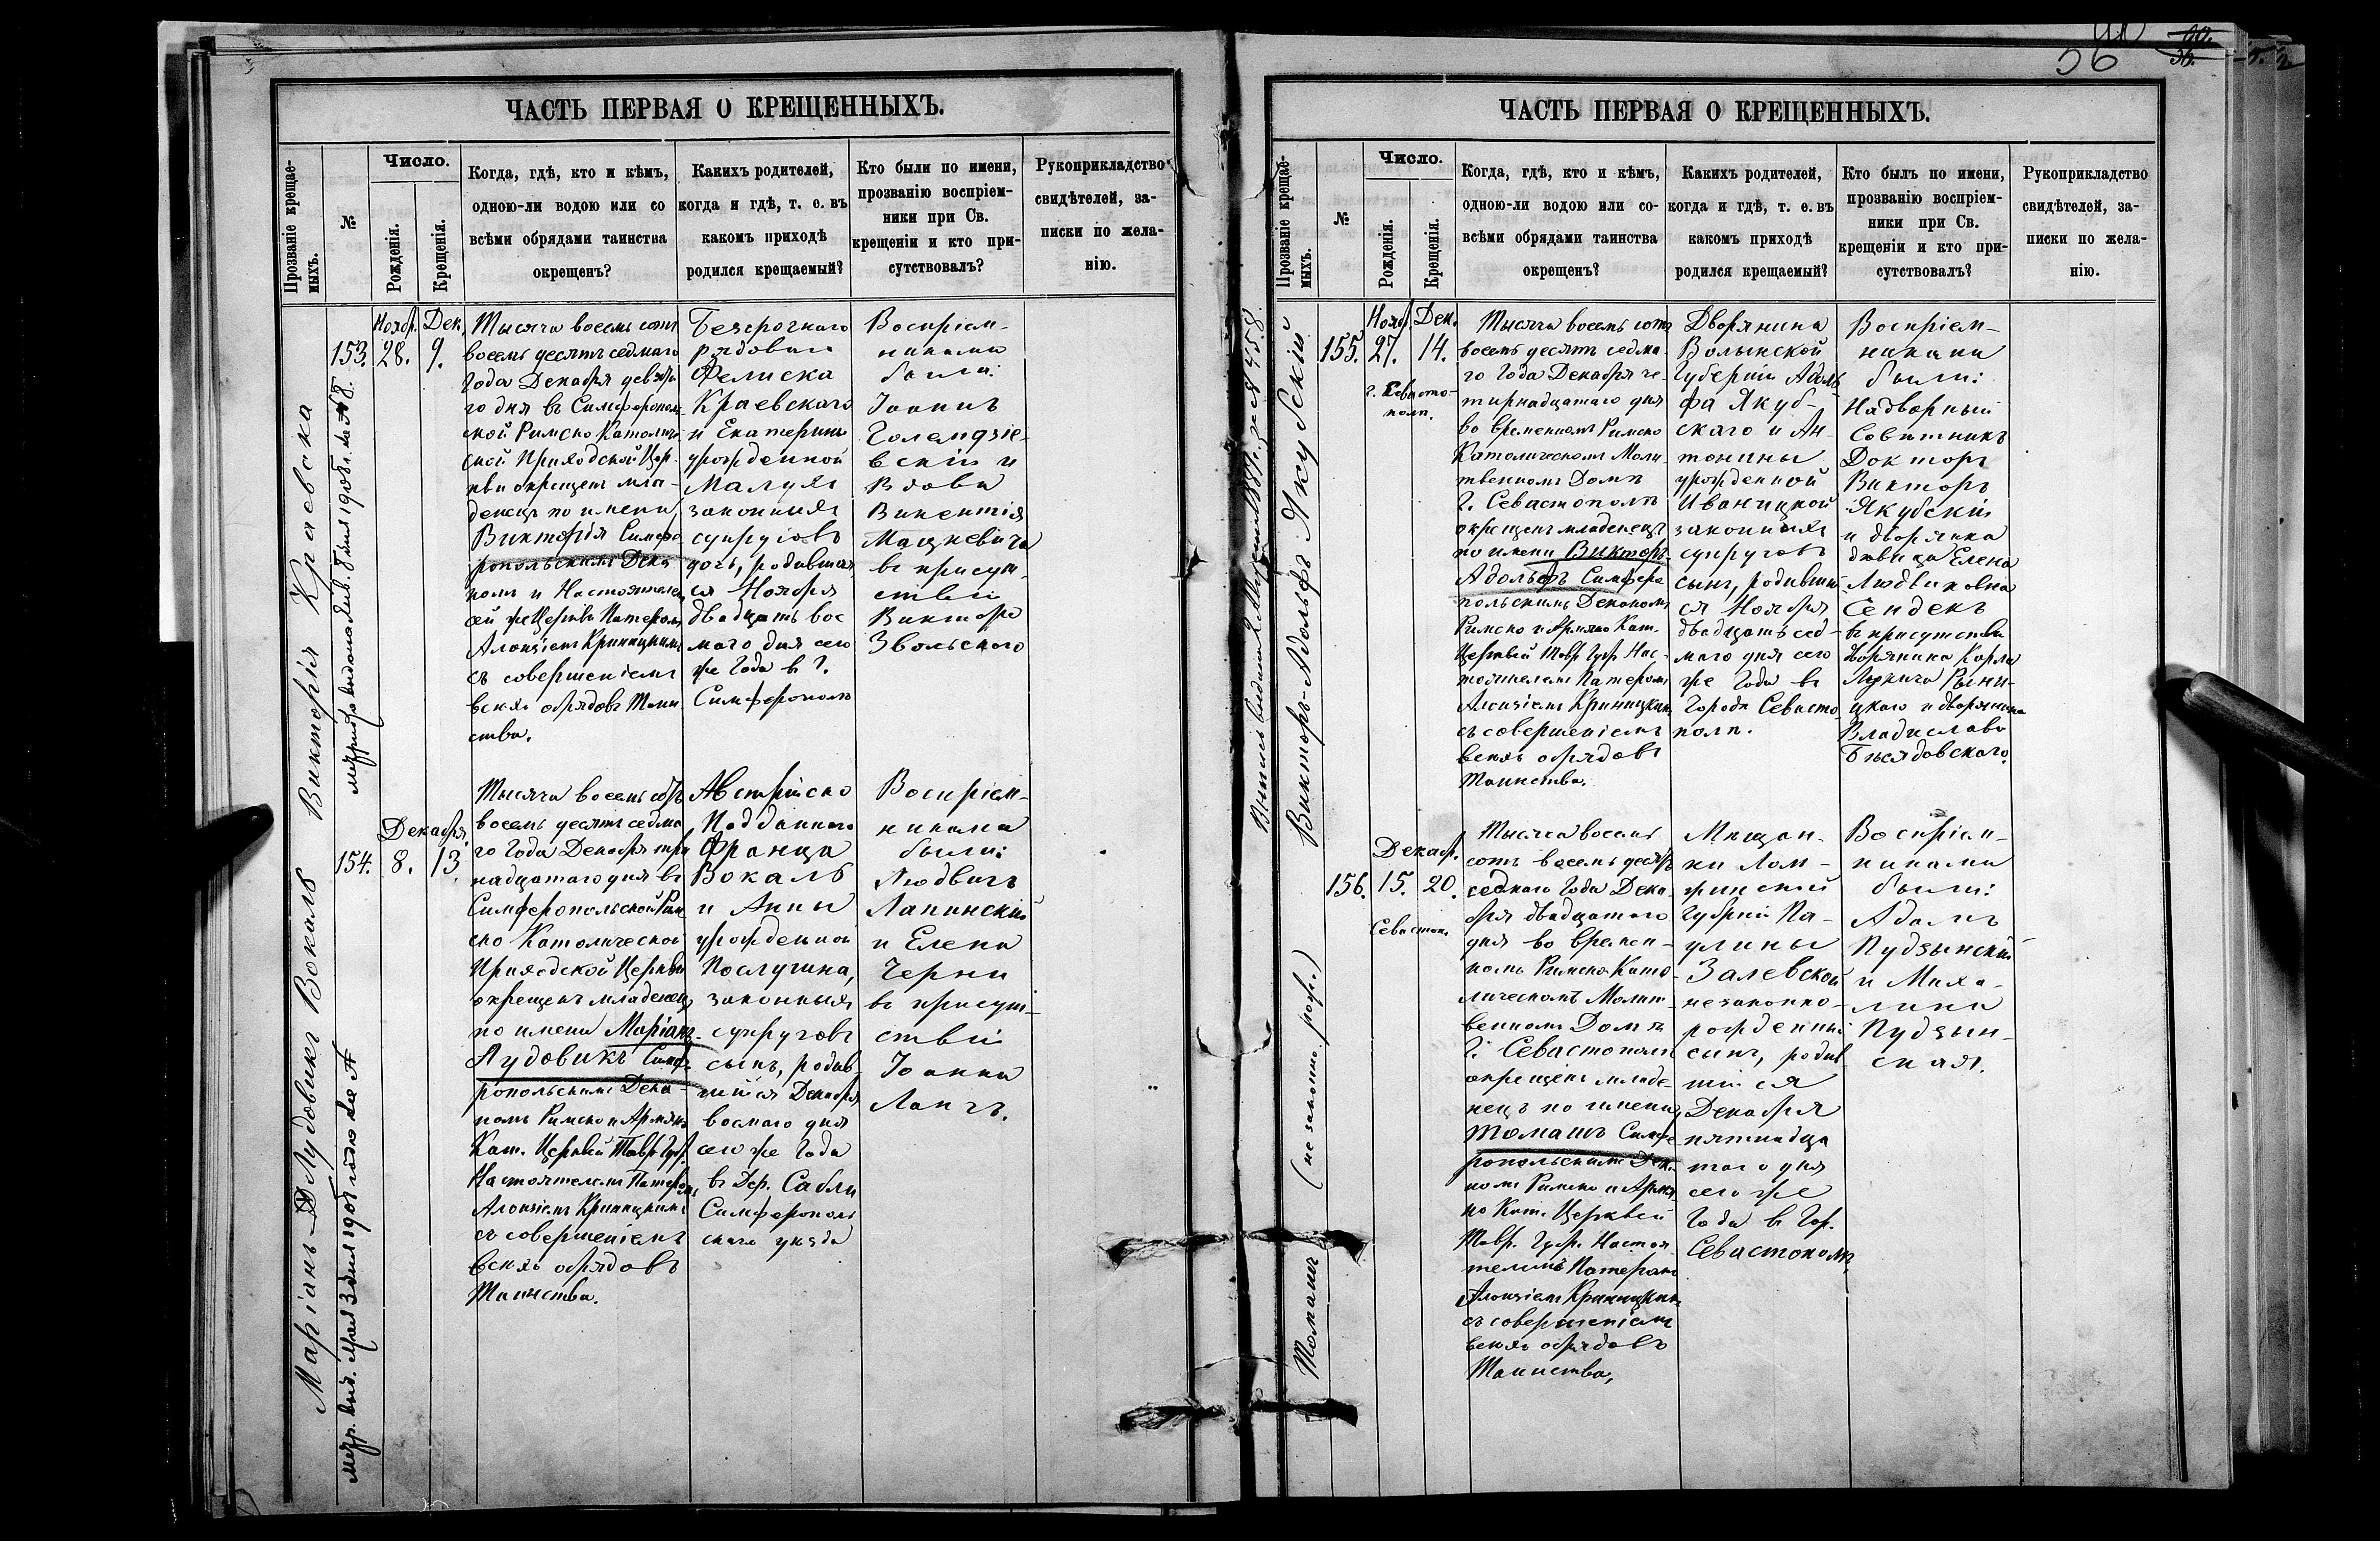 ЧАСТЬ ПЕРВАЯ О КРЕЩЕННЫХЪ.
Прозваніе крещае-
мыхъ.
№
Число.
Рожденія.
Крещенія.
Когда, гдѣ, кто и кѣмъ,
одною-ли водою или со
всѣми обрядами таинства
окрещенъ?
Какихъ родителей,
когда и гдѣ, т. е. въ
какомъ приходѣ
родился крещаемый?
Кто были по имени,
прозванію воспріем-
ники при Св.
крещеніи и кто при-
сутствовалъ?
Рукоприкладство
свидѣтелей, за-
писки по жела-
нію.
Викторія Краевска
153.
Нояб.
28.
Дек.
9.
Тысяча восемь сотъ
восемь десятъ седмаго
Года Декабря девята
го дня въ Симферополь
ской Римско Католиче
ской Приходской Цер-
кви окрещенъ мла-
денецъ по имени,
Викторія Симфе
ропольскимъ Дека
номъ и Настоятелемъ
ой же Церкви Патеромъ
Алоизіемъ Криницкимъ
съ совершеніемъ
всѣхъ обрядовъ Таин
ства.
Безсрочнаго
рядоваго
Феликса
Краевскаго
и Екатерины
урожденной
Малухъ
законныхъ
супруговъ
дочь, родившая
ся Ноября
двадцать вос
маго дня сего
же Года въ Г.
Симферополѣ
Воспріем-
никами
были:
Іоаннъ
Голендзіе-
вскій и
Вдова
Викентія
Мацкевича
въ присут-
ствіи
Виктора
Звольскаго
Маріанъ-Лудовикъ Вокаль
154.
Декабря.
8.
13.
Тысяча восемь сотъ
восемь десятъ седма
го Года Декабря три
надцатаго дня въ
Симферопольской Рим
ско Католической
Приходской Церкви
окрещенъ младенецъ
по имени Маріанъ-
Лудовикъ Симфе
ропольскимъ Дека-
номъ Римско и Армяно
Кат. Церквей Тавр. Губ.
Настоятелемъ Патеромъ
Алоизіемъ Криницкимъ
съ совершеніемъ
всѣхъ обрядовъ
Таинства.
Австрійско
Подданнаго
Франца
Вокаль
и Анны
урожденной
Послугина,
законныхъ
супруговъ
сынъ, родив-
шійся Декабря
восмаго дня
сего же Года
въ Дер. Сабли
Симферополь
скаго уѣзда
Воспріем-
никами
были:
Людвигъ
Лапинскій
и Елена
Черни
въ присут-
ствіи
Іоанна
Лангъ.
ЧАСТЬ ПЕРВАЯ О КРЕЩЕННЫХЪ.
Прозваніе крещае-
мыхъ.
№
Число.
Рожденія.
Крещенія.
Когда, гдѣ, кто и кѣмъ,
одною-ли водою или со-
всѣми обрядами таинства
окрещенъ?
Какихъ родителей,
когда и гдѣ, т. е. въ
какомъ приходѣ
родился крещаемый?
Кто былъ по имени,
прозванію воспріем-
ники при Св.
крещеніи и кто при-
сутствовалъ?
Рукоприкладство
свидѣтелей, за-
писки по жела-
нію.
Викторъ-Адольфъ Якубскій
155.
Нояб.
27.
Дек.
14.
г. Севасто-
поль.
Тысяча восемь сотъ
восемь десятъ седма-
го Года Декабря че-
тырнадцатаго дня
во временномъ Римско
Католическомъ Моли-
твенномъ Домѣ
Г. Севастополѣ
окрещенъ младенецъ
по имени Викторъ-
Адольфъ Симферо
польскимъ Деканомъ
Римско и Армяно Кат.
Церквей Тавр. Губ. Нас-
тоятелемъ Патеромъ
Алоизіемъ Криницкимъ
съ совершеніемъ
всѣхъ обрядовъ
Таинства.
Дворянина
Волынской
Губерніи Адоль
фа Якуб-
скаго и Ан-
тонины
урожденной
Иваницкой
законныхъ
супруговъ
сынъ, родившій-
ся Ноября
двадцать сед-
маго дня сего
же Года въ
Городѣ Севасто
полѣ.
Воспріем-
никами
были:
Надворный
Совѣтникъ
Докторъ
Викторъ
Якубскій
и дворянка
дѣвица Елена
Людвиковна
Сендекъ
въ присутствіи
дворянина Карла
и дворянина
Владислава
Бѣсядовскаго.
Томашъ (не законно рожд.)
156.
Декаб.
15.
20.
Севастоп.
Тысяча восемь
сотъ восемь десятъ
седмаго Года Дека-
бря двадцатаго
дня во времен-
номъ Римско Като-
лическомъ Молит-
венномъ Домѣ
Г. Севастополѣ
окрещенъ младе-
нецъ по имени
Томашъ Симфе
ропольскимъ Дека-
номъ Римско и Армя-
но Кат. Церквей
Тавр. Губ. Настоя-
телемъ Патеромъ
Алоизіемъ Криницкимъ
съ совершеніемъ
всѣхъ обрядовъ
Таинства,
Мѣщан-
ки Лом-
жинской
Губерніи Па-
улины
Залевской
незаконно-
рожденный
сынъ, родив-
шійся
Декабря
пятнадца
таго дня
сего же
Года въ Гор.
Севастополѣ,
Воспріем-
никами
были:
Адамъ
Пудзынскій
и Миха-
лина
Пудзын-
ская.